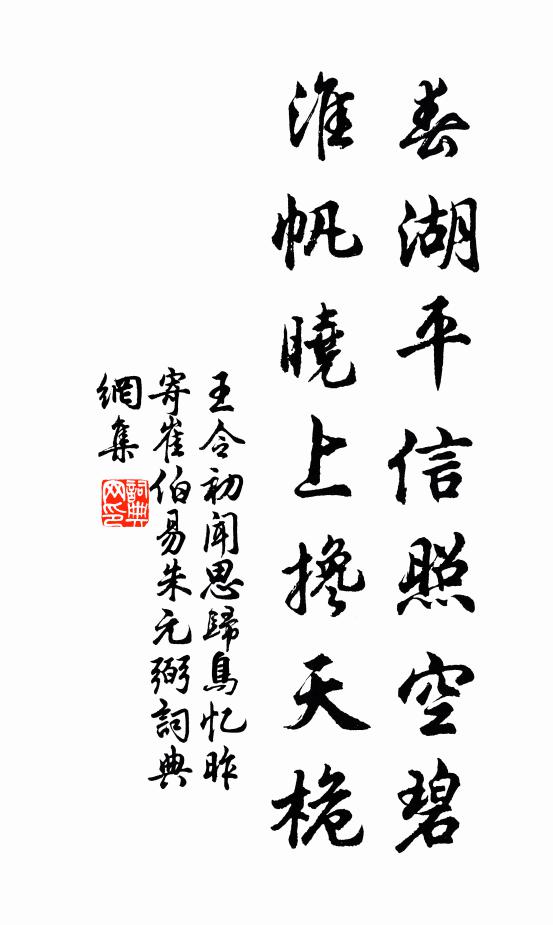 春湖平信照空碧
淮帆曉上搀天桅
王令初聞思歸鳥忆昨
寄崔伯易朱元弼詞典
網集
詞典
网印